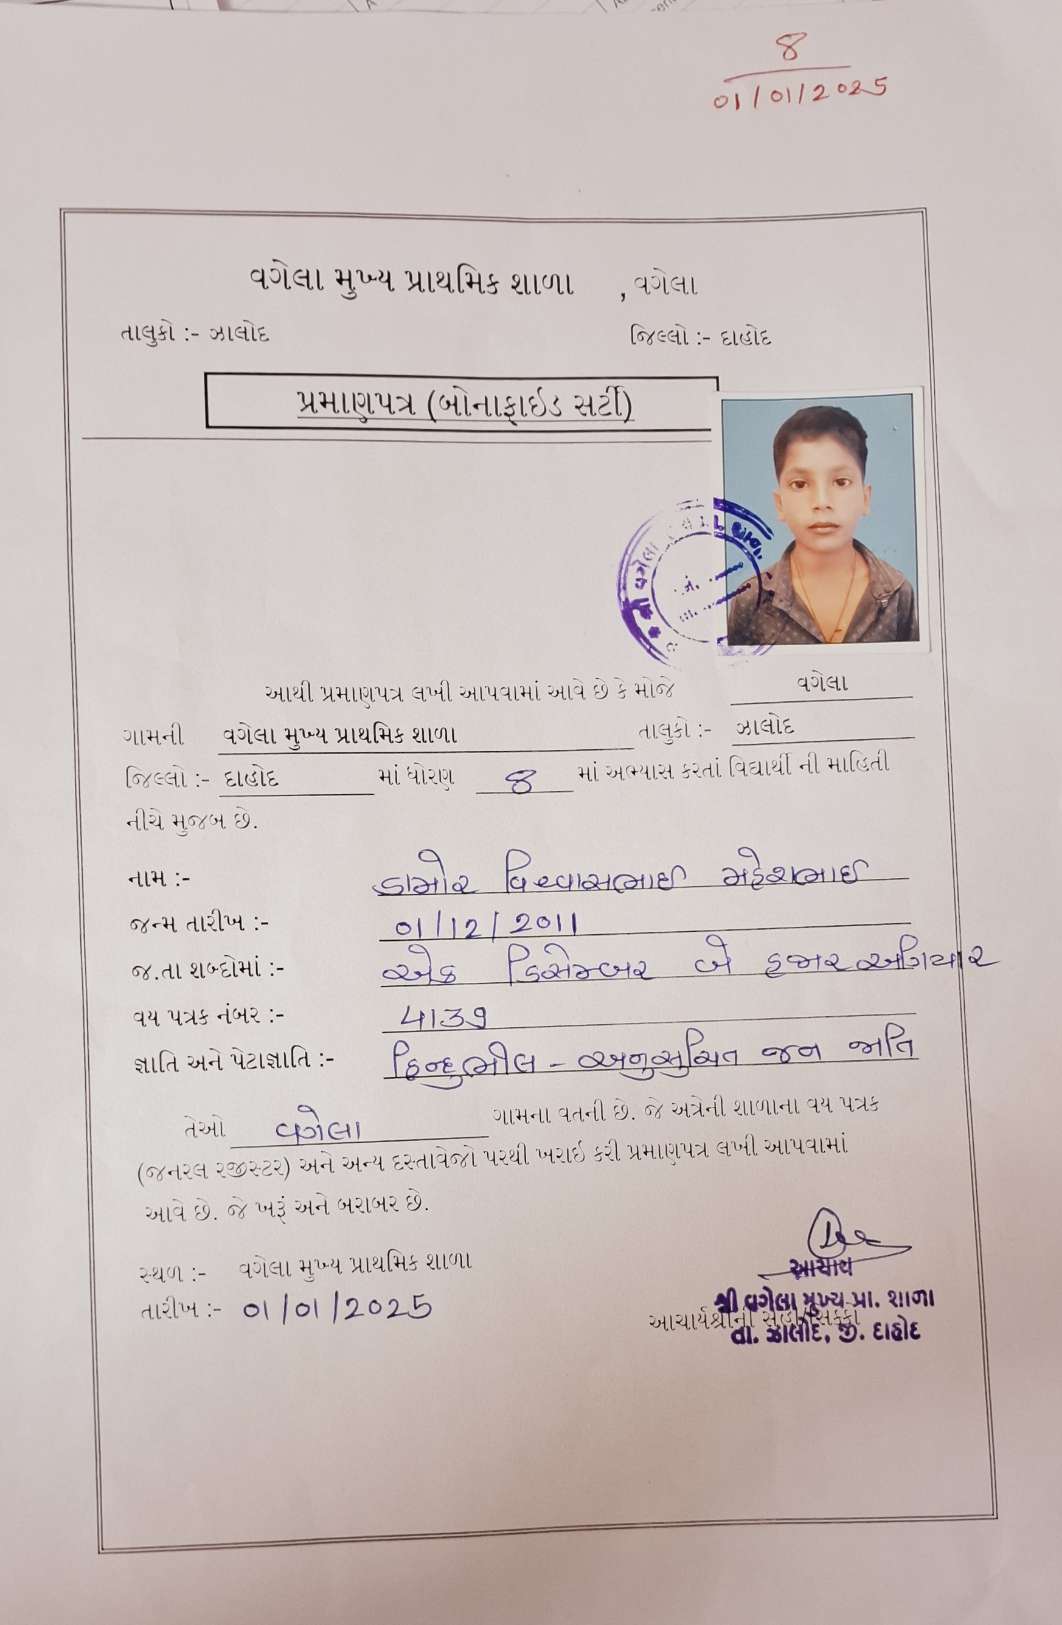 8
01/01/2025
વગેલા મુખ્ય પ્રાથમિક શાળા , વગેલા
તાલુકો :- ઝાલોદ જિલ્લો :- દાહોદ
પ્રમાણપત્ર (બોનાફાઇડ સર્ટી)
આથી પ્રમાણપત્ર લખી આપવામાં આવે છે કે મોજે વગેલા
ગામની વગેલા મુખ્ય પ્રાથમિક શાળા તાલુકો :- ઝાલોદ
જિલ્લો :- દાહોદ માં ધોરણ 8 માં અભ્યાસ કરતાં વિદ્યાર્થી ની માહિતી
નીચે મુજબ છે.
નામ :- ડામોર વિશ્વાસભાઈ મહેશભાઈ
જન્મ તારીખ :- 01/12/2011
જ.તા શબ્દોમાં :- એક ડિસેમ્બર બે હજાર અગિયાર
વય પત્રક નંબર :- 4139
જ્ઞાતિ અને પેટાજ્ઞાતિ :- હિન્દુભીલ - અનુસુચિત જન જાતિ
તેઓ વગેલા ગામના વતની છે. જે અત્રેની શાળાના વય પત્રક
(જનરલ રજીસ્ટર) અને અન્ય દસ્તાવેજો પરથી ખરાઇ કરી પ્રમાણપત્ર લખી આપવામાં
આવે છે. જે ખરૂં અને બરાબર છે.
સ્થળ :- વગેલા મુખ્ય પ્રાથમિક શાળા
તારીખ :- 01/01/2025
આચાર્ય
શ્રી વગેલા મુખ્ય પ્રા. શાળા
આચાર્યશ્રીની સહી/સિક્કો
તા. ઝાલોદ, જી. દાહોદ